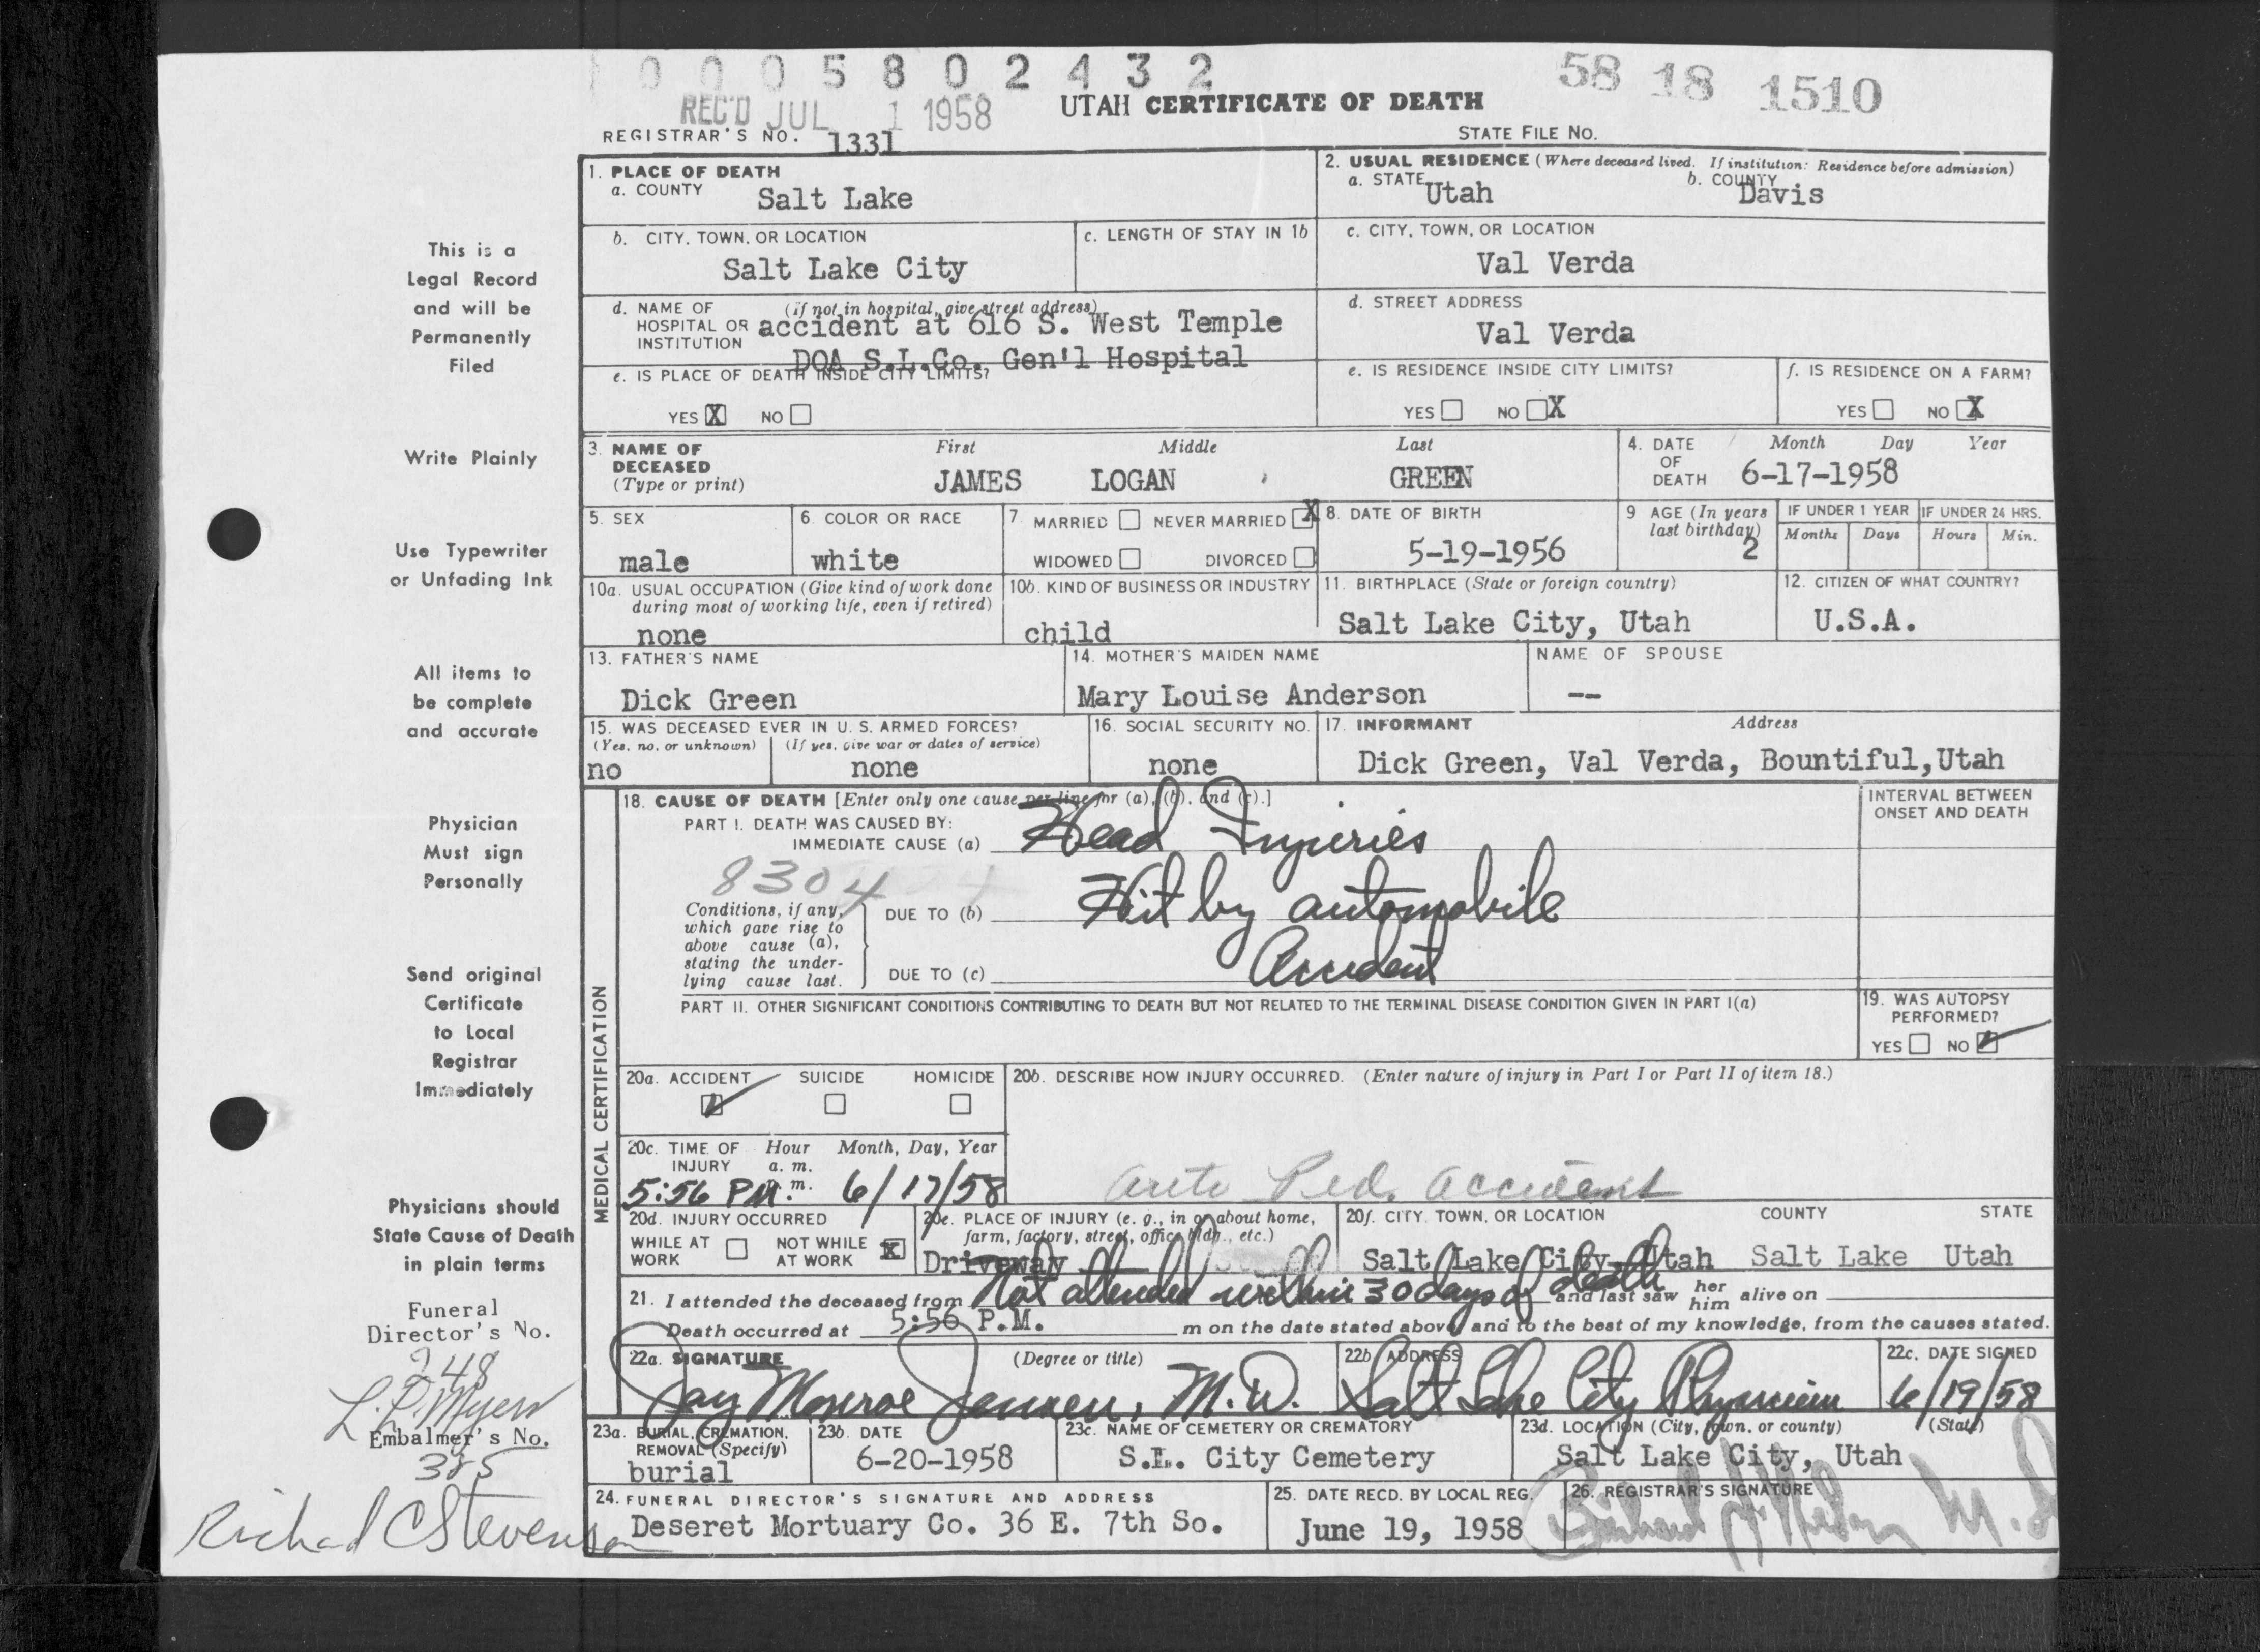 0 0 0 5 8 0 2 4 3 2
58 18 1510
REC'D JUL 1 1958
UTAH CERTIFICATE OF DEATH
REGISTRAR'S NO. 1331
STATE FILE NO.
1. PLACE OF DEATH
a. COUNTY Salt Lake
2. USUAL RESIDENCE (Where deceased lived. If institution: Residence before admission)
a. STATE Utah b. COUNTY Davis
b. CITY, TOWN, OR LOCATION
Salt Lake City
c. LENGTH OF STAY IN 1b
c. CITY, TOWN, OR LOCATION
Val Verda
d. NAME OF HOSPITAL OR INSTITUTION (If not in hospital, give street address)
accident at 616 S. West Temple
DOA S.L.Co. Gen'l Hospital
d. STREET ADDRESS
Val Verda
e. IS PLACE OF DEATH INSIDE CITY LIMITS?
YES X NO
e. IS RESIDENCE INSIDE CITY LIMITS?
YES NO X
f. IS RESIDENCE ON A FARM?
YES NO X
3. NAME OF DECEASED (Type or print)
First Middle Last
JAMES LOGAN GREEN
4. DATE OF DEATH Month Day Year
6-17-1958
5. SEX
male
6. COLOR OR RACE
white
7. MARRIED NEVER MARRIED X
WIDOWED DIVORCED
8. DATE OF BIRTH
5-19-1956
9 AGE (In years last birthday)
2
IF UNDER 1 YEAR
Months Days
IF UNDER 24 HRS.
Hours Min.
10a. USUAL OCCUPATION (Give kind of work done during most of working life, even if retired)
none
10b. KIND OF BUSINESS OR INDUSTRY
child
11. BIRTHPLACE (State or foreign country)
Salt Lake City, Utah
12. CITIZEN OF WHAT COUNTRY?
U.S.A.
13. FATHER'S NAME
Dick Green
14. MOTHER'S MAIDEN NAME
Mary Louise Anderson
NAME OF SPOUSE
--
15. WAS DECEASED EVER IN U. S. ARMED FORCES?
(Yes, no, or unknown) (If yes, give war or dates of service)
no none
16. SOCIAL SECURITY NO.
none
17. INFORMANT Address
Dick Green, Val Verda, Bountiful, Utah
MEDICAL CERTIFICATION
18. CAUSE OF DEATH [Enter only one cause per line for (a), (b), and (c).]
PART I. DEATH WAS CAUSED BY:
IMMEDIATE CAUSE (a) Head Injuries
8304
Conditions, if any, which gave rise to above cause (a), stating the underlying cause last.
DUE TO (b) Hit by automobile
DUE TO (c) Accident
INTERVAL BETWEEN ONSET AND DEATH
PART II. OTHER SIGNIFICANT CONDITIONS CONTRIBUTING TO DEATH BUT NOT RELATED TO THE TERMINAL DISEASE CONDITION GIVEN IN PART I(a)
19. WAS AUTOPSY PERFORMED?
YES NO
20a. ACCIDENT SUICIDE HOMICIDE
20b. DESCRIBE HOW INJURY OCCURRED. (Enter nature of injury in Part I or Part II of item 18.)
Auto Ped. Accident
20c. TIME OF INJURY Hour Month, Day, Year
a. m.
p. m.
5:56 PM. 6/17/58
20d. INJURY OCCURRED
WHILE AT WORK NOT WHILE AT WORK X
20e. PLACE OF INJURY (e. g., in or about home, farm, factory, street, office bldg., etc.)
Driveway
20f. CITY, TOWN, OR LOCATION COUNTY STATE
Salt Lake City, Utah Salt Lake Utah
21. I attended the deceased from Not attended within 30 days of death and last saw her him alive on
Death occurred at 5:56 P.M. m on the date stated above, and to the best of my knowledge, from the causes stated.
22a. SIGNATURE (Degree or title)
Jay Monroe Jensen, M.D.
22b. ADDRESS
Salt Lake City Physician
22c. DATE SIGNED
6/19/58
23a. BURIAL, CREMATION, REMOVAL (Specify)
burial
23b. DATE
6-20-1958
23c. NAME OF CEMETERY OR CREMATORY
S.L. City Cemetery
23d. LOCATION (City, town, or county) (State)
Salt Lake City, Utah
24. FUNERAL DIRECTOR'S SIGNATURE AND ADDRESS
Deseret Mortuary Co. 36 E. 7th So.
25. DATE RECD. BY LOCAL REG.
June 19, 1958
26. REGISTRAR'S SIGNATURE
M.D.
This is a
Legal Record
and will be
Permanently
Filed
Write Plainly
Use Typewriter
or Unfading Ink
All items to
be complete
and accurate
Physician
Must sign
Personally
Send original
Certificate
to Local
Registrar
Immediately
Physicians should
State Cause of Death
in plain terms
Funeral
Director's No.
248
L. P. Myers
Embalmer's No.
385
Richard C Stevenson